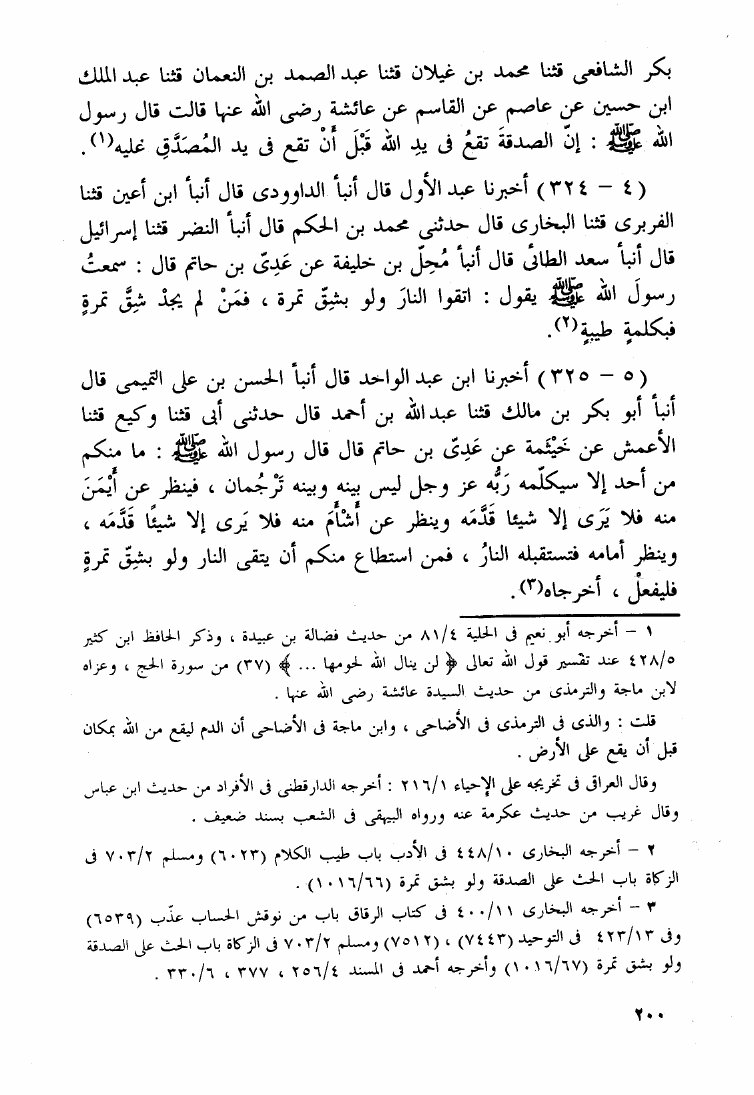 بكر الشافعى قثنا محمد بن غيلان قثنا عبد الصمد بن النعمان قثنا عبد الملك
ابن حسين عن عاصم عن القاسم عن عائشة رضى الله عنها قالت قال رسول
الله ﷺ : إنّ الصدقةَ تقعُ فى يدِ الله قَبْلَ أَنْ تقع فى يد المُصَدَّقِ غليه(١).
(٤ - ٣٢٤) أخبرنا عبد الأول قال أنبأ الداوودى قال أنبأ ابن أعين قثنا
الفربرى قثنا البخارى قال حدثنى محمد بن الحكم قال أنبأ النضر قثنا إسرائيل
قال أنبأ سعد الطائى قال أنبأ مُحِلّ بن خليفة عن عَدِىّ بن حاتم قال : سمعتُ
رسولَ الله ﷺ يقول : اتقوا النارَ ولو بشِقّ تمرة ، فمَنْ لم يجدْ شِقَّ تمرةٍ
فبكلمةٍ طيبةٍ(٢).
(٥ - ٣٢٥) أخبرنا ابن عبد الواحد قال أنبأ الحسن بن على التميمى قال
أنبأ أبو بكر بن مالك قثنا عبدالله بن أحمد قال حدثنى أبى قثنا وكيع قثنا
الأعمش عن خَيْثَمة عن عَدِىّ بن حاتم قال قال رسول الله ﷺ : ما منكم
من أحد إلا سيكلّمه رَبُّه عز وجل ليس بينه وبينه تَرْجُمان ، فينظر عن أَيْمَنَ
منه فلا يَرَى إلا شيئا قَدَّمَه وينظر عن أَشْأَمَ منه فلا يَرى إلا شيئًا قَدَّمَه ،
وينظر أمامه فتستقبله النارُ ، فمن استطاع منكم أن يتقى النار ولو بشِقّ تمرةٍ
فليفعلْ ، أخرجاه(٣).
١ - أخرجه أبو نعيم فى الحلية ٨١/٤ من حديث فضالة بن عبيدة ، وذكر الحافظ ابن كثير
٤٢٨/٥ عند تفسير قول الله تعالى ﴿ لن ينال الله لحومها ... ﴾ (٣٧) من سورة الحج ، وعزاه
لابن ماجة والترمذى من حديث السيدة عائشة رضى الله عنها .
قلت : والذى فى الترمذى فى الأضاحى ، وابن ماجة فى الأضاحى أن الدم ليقع من الله بمكان
قبل أن يقع على الأرض .
وقال العراقى فى تخريجه على الإحياء ٢١٦/١ : أخرجه الدارقطنى فى الأفراد من حديث ابن عباس
وقال غريب من حديث عكرمة عنه ورواه البيهقى فى الشعب بسند ضعيف .
٢ - أخرجه البخارى ٤٤٨/١٠ فى الأدب باب طيب الكلام (٦٠٢٣) ومسلم ٧٠٣/٢ فى
الزكاة باب الحث على الصدقة ولو بشق تمرة (١٠١٦/٦٦) .
٣ - أخرجه البخارى ٤٠٠/١١ فى كتاب الرقاق باب من نوقش الحساب عذّب (٦٥٣٩)
وفى ٤٢٣/١٣ فى التوحيد (٧٤٤٣) ، (٧٥١٢) ومسلم ٧٠٣/٢ فى الزكاة باب الحث على الصدقة
ولو بشق تمرة (١٠١٦/٦٧) وأخرجه أحمد فى المسند ٢٥٦/٤ ، ٣٧٧ ، ٣٣٠/٦ .
٢٠٠